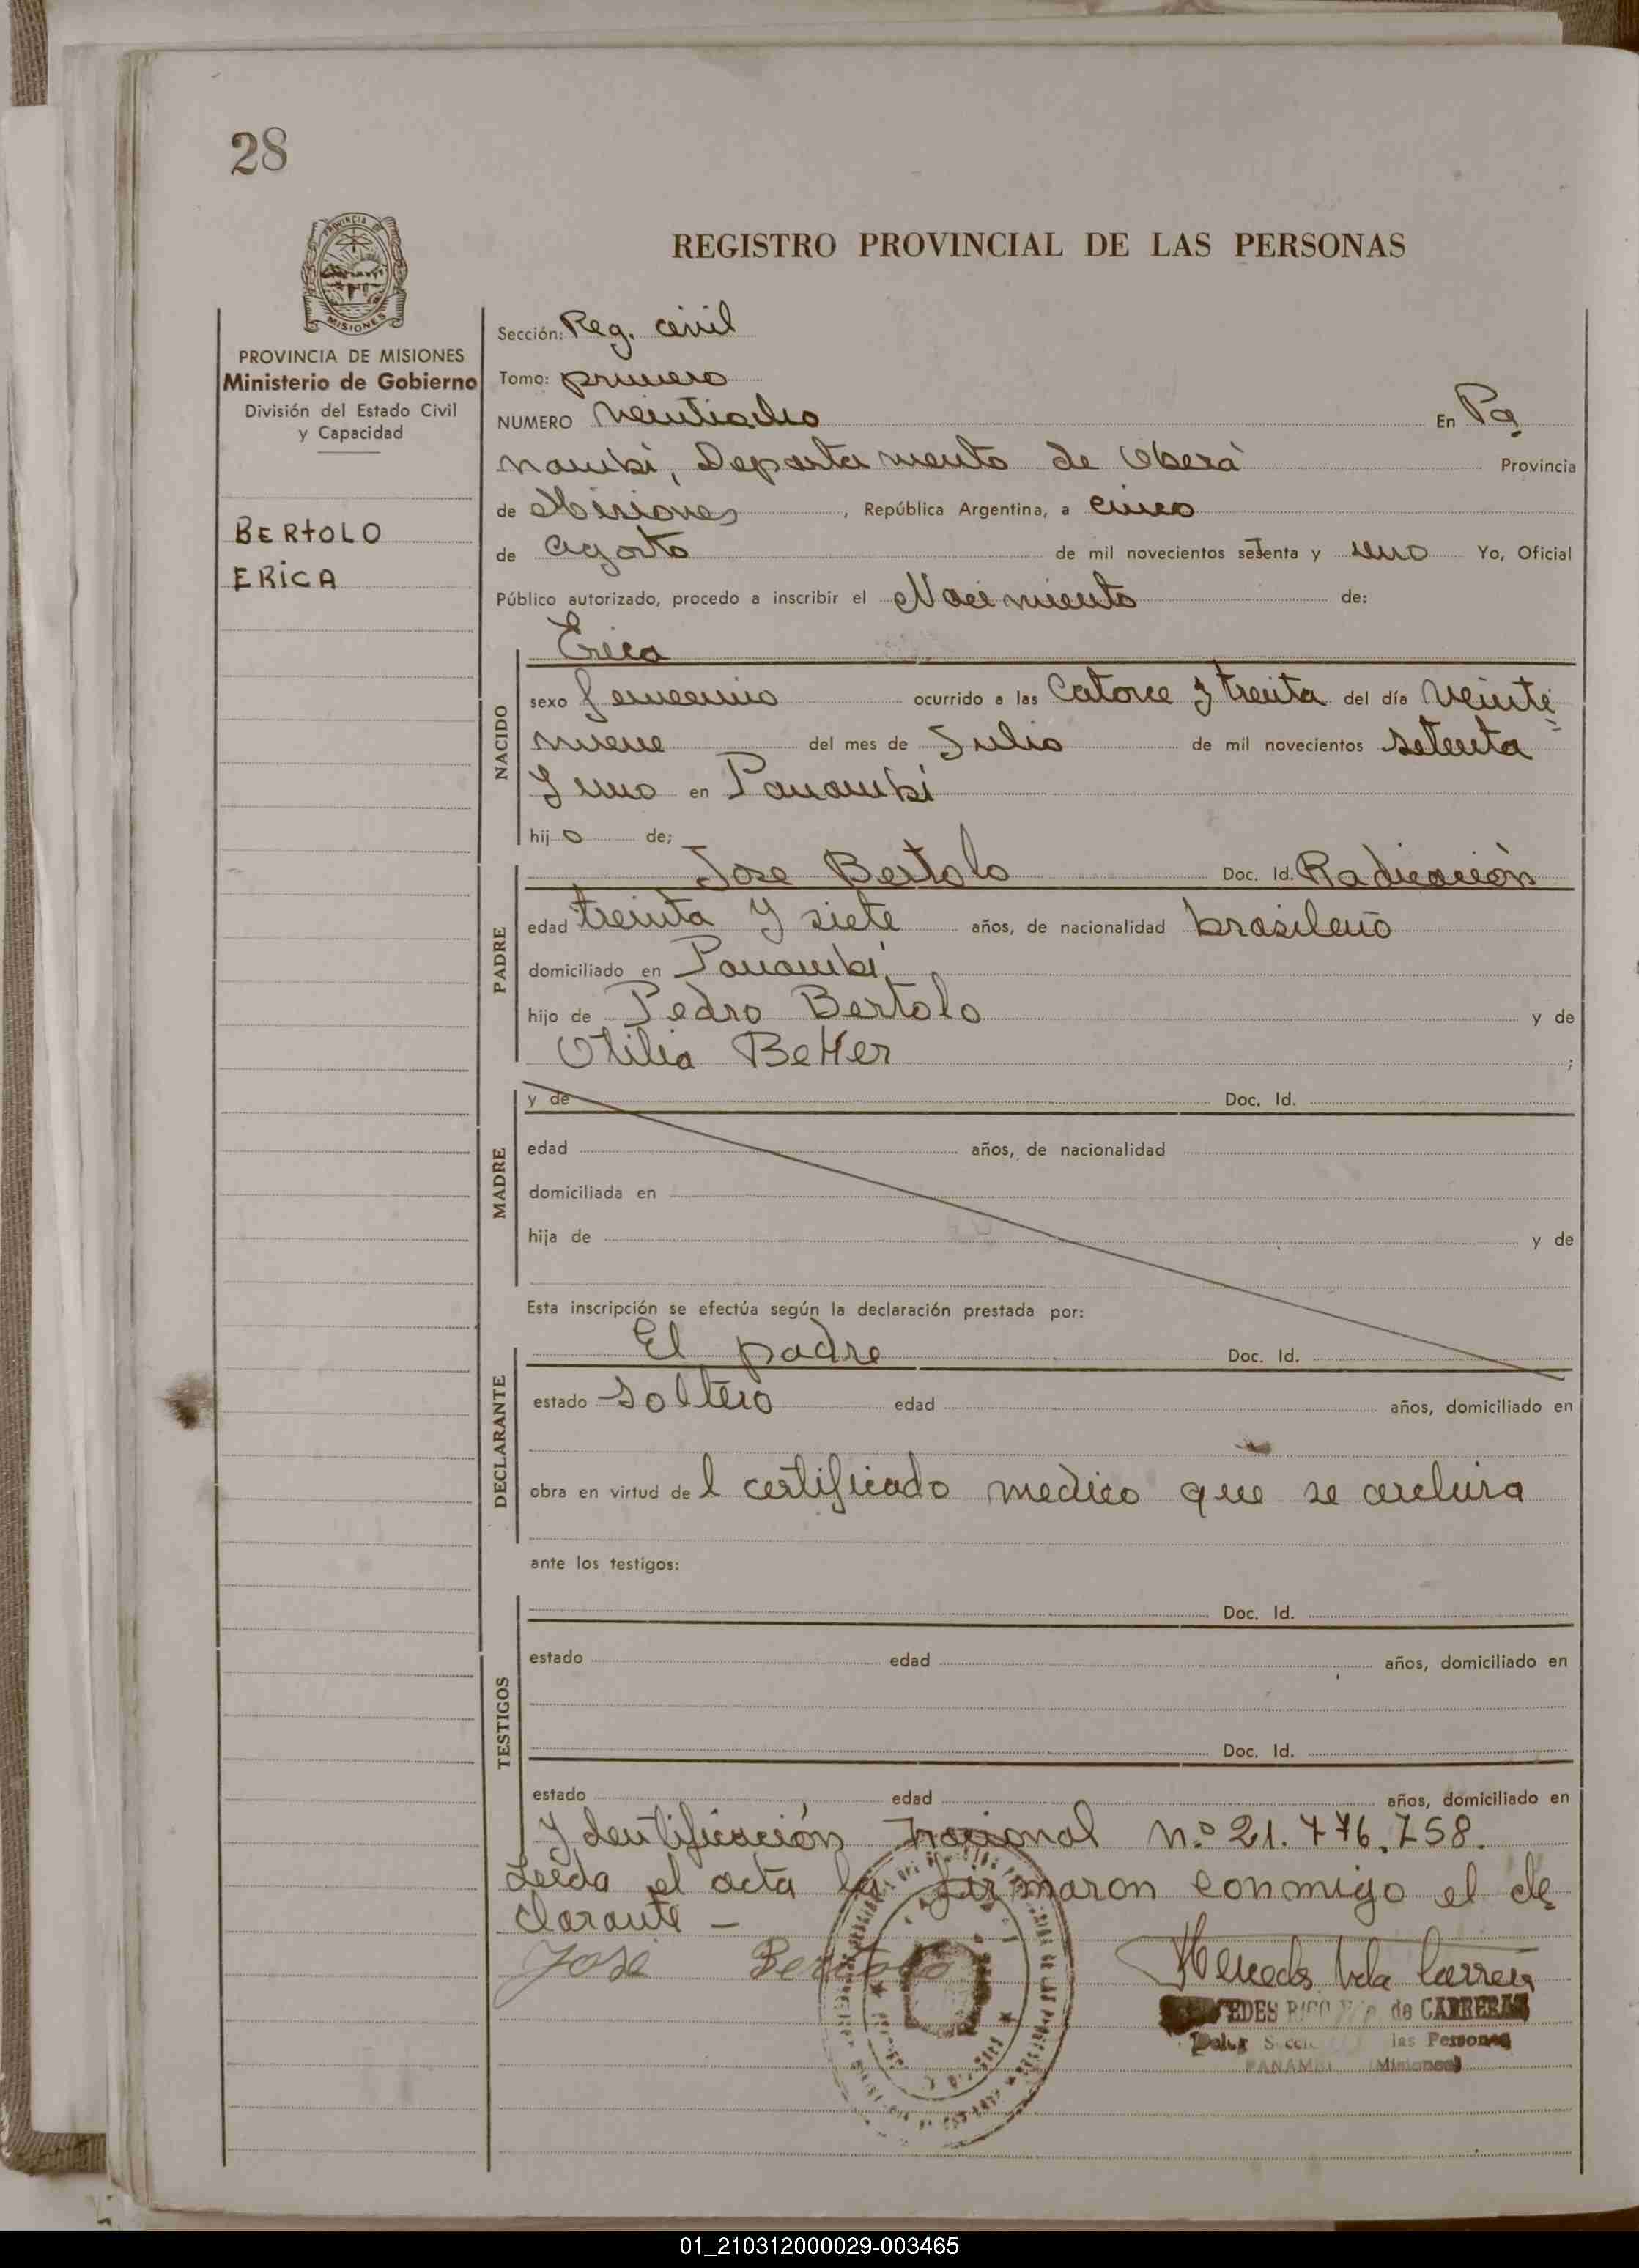 28
PROVINCIA
MISIONES
REGISTRO PROVINCIAL DE LAS PERSONAS
PROVINCIA DE MISIONES
Ministerio de Gobierno
División del Estado Civil
y Capacidad
BERTOLO
ERICA
Sección: Reg. civil
Tomo: primero
NUMERO Veintiocho En Pa
nambi, Departamento de Oberá Provincia
de Misiones, República Argentina, a cinco
de agosto de mil novecientos setenta y uno Yo, Oficial
Público autorizado, procedo a inscribir el Nacimiento de:
NACIDO
Erica
sexo femenino ocurrido a las Catorce y treita del día veinte
nueve del mes de Julio de mil novecientos setenta
y uno en Panambí
hijo de;
PADRE
Jose Bertolo Doc. Id. Radicación
edad treinta y siete años, de nacionalidad brasileño
domiciliado en Panambí
hijo de Pedro Bertolo y de
Otilia Better ;
MADRE
y de Doc. Id.
edad años, de nacionalidad
domiciliada en
hija de y de
Esta inscripción se efectúa según la declaración prestada por:
DECLARANTE
El padre Doc. Id.
estado soltero edad años, domiciliado en
obra en virtud de l certificado medico que se archiva
ante los testigos:
TESTIGOS
Doc. Id.
estado edad años, domiciliado en
Doc. Id.
estado edad años, domiciliado en
Ydentificación Nacional n.º 21.776.758.
Leida el acta la firmaron conmigo el de
clarante —
José Bertolo
de CARRERAS
las Personas
PANAMBI (Misiones)
01_210312000029-003465